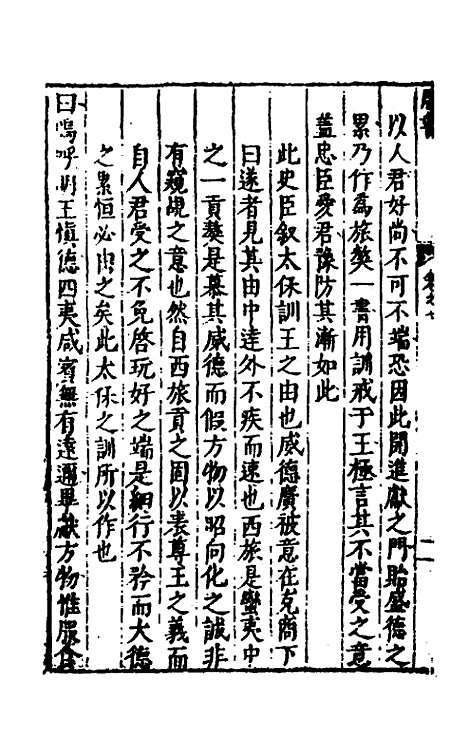 以人君好尚不可不端恐因此開進獻之門貽盛德之
累乃作為旅獒一書用訓戒于王極言其不當受之意
蓋忠臣愛君豫防其漸如此
此史臣叙太保訓王之由也威德廣被意在克商下
曰遂者見其由中達外不疾而速也西旅是蠻夷中
之一貢獒是慕其威德而假方物以昭向化之誠非
有窺覘之意也然自西旅貢之固以表尊王之義而
自人君受之不免啓玩好之端是細行不矜而大德
之累恒必由之矣此太保之訓所以作也
曰嗚呼明王慎德四夷咸賓無有遠邇畢獻方物惟服食